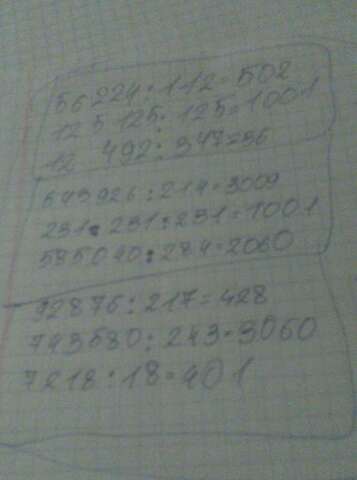 56224:112=502
125125:125=1001
12 492:347=36
643926:214=3009
231231:231=1001
585040:284=2060
92876:217=428
743580:243=3060
7218:18=401